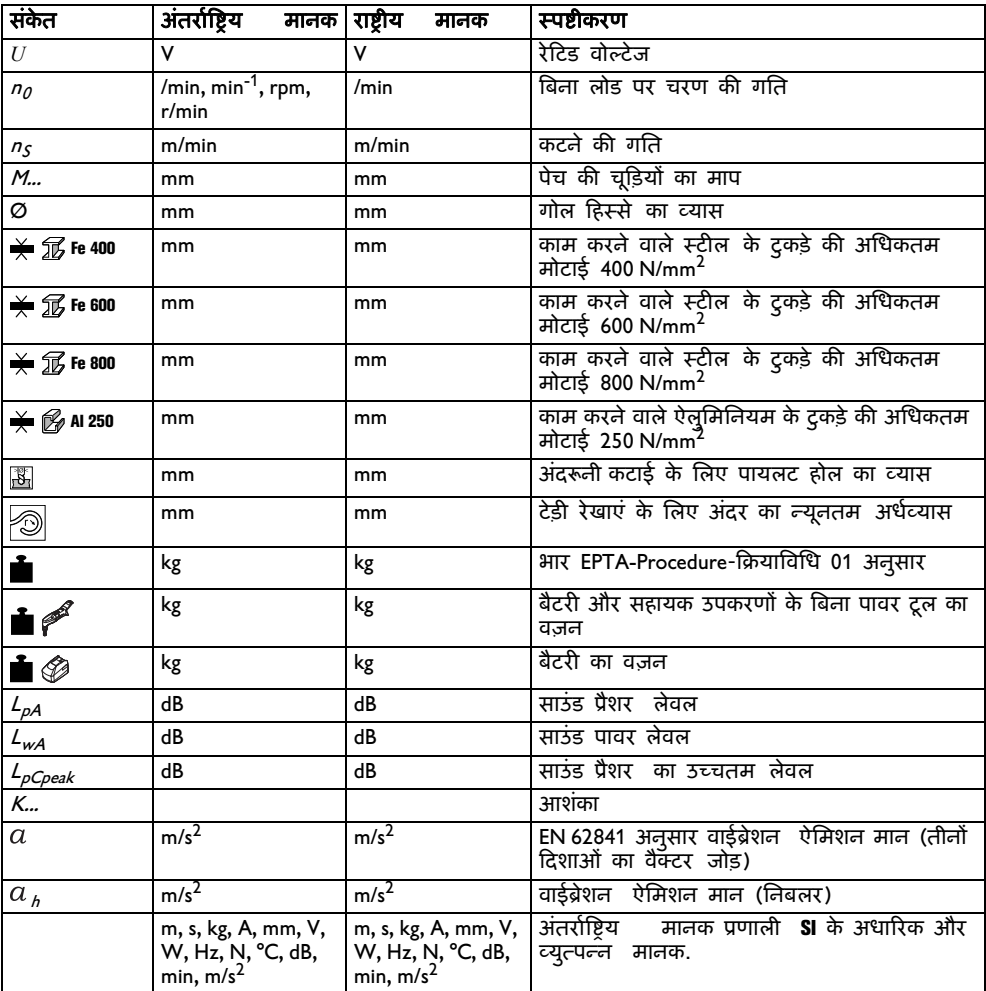 संकेत अंतर्राष्ट्रिय मानक राष्ट्रीय मानक स्पष्टीकरण
U V V रेटिड वोल्टेज
n0 /min, min-1, rpm, r/min /min बिना लोड पर चरण की गति
nS m/min m/min कटने की गति
M... mm mm पेच की चूड़ियों का माप
Ø mm mm गोल हिस्से का व्यास
Fe 400 mm mm काम करने वाले स्टील के टुकड़े की अधिकतम
मोटाई 400 N/mm2
Fe 600 mm mm काम करने वाले स्टील के टुकड़े की अधिकतम
मोटाई 600 N/mm2
Fe 800 mm mm काम करने वाले स्टील के टुकड़े की अधिकतम
मोटाई 800 N/mm2
Al 250 mm mm काम करने वाले ऐलुमिनियम के टुकड़े की अधिकतम
मोटाई 250 N/mm2
mm mm अंदरूनी कटाई के लिए पायलट होल का व्यास
mm mm टेड़ी रेखाएं के लिए अंदर का न्यूनतम अर्धव्यास
kg kg भार EPTA-Procedure-क्रियाविधि 01 अनुसार
kg kg बैटरी और सहायक उपकरणों के बिना पावर टूल का
वज़न
kg kg बैटरी का वज़न
LpA dB dB साउंड प्रैशर लेवल
LwA dB dB साउंड पावर लेवल
LpCpeak dB dB साउंड प्रैशर का उच्चतम लेवल
K... आशंका
a m/s2 m/s2 EN 62841 अनुसार वाईब्रेशन ऐमिशन मान (तीनों
दिशाओं का वैक्टर जोड़)
a h m/s2 m/s2 वाईब्रेशन ऐमिशन मान (निबलर)
m, s, kg, A, mm, V, m, s, kg, A, mm, V, अंतर्राष्ट्रिय मानक प्रणाली SI के अधारिक और
W, Hz, N, °C, dB, W, Hz, N, °C, dB, व्युत्पन्न मानक.
min, m/s2 min, m/s2